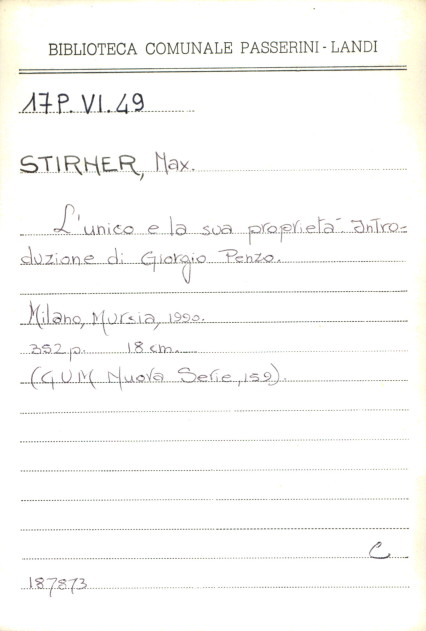 BIBLIOTECA COMUNALE PASSERINI-LANDI
17P. VI. 49
STIRNER, Max.
L'unico e la sua proprietà. Intro=
duzione di Giorgio Penzo.
Milano, Mursia, 1990.
352 p. 18 cm.
(GUM Nuova Serie, 159).
C
187873